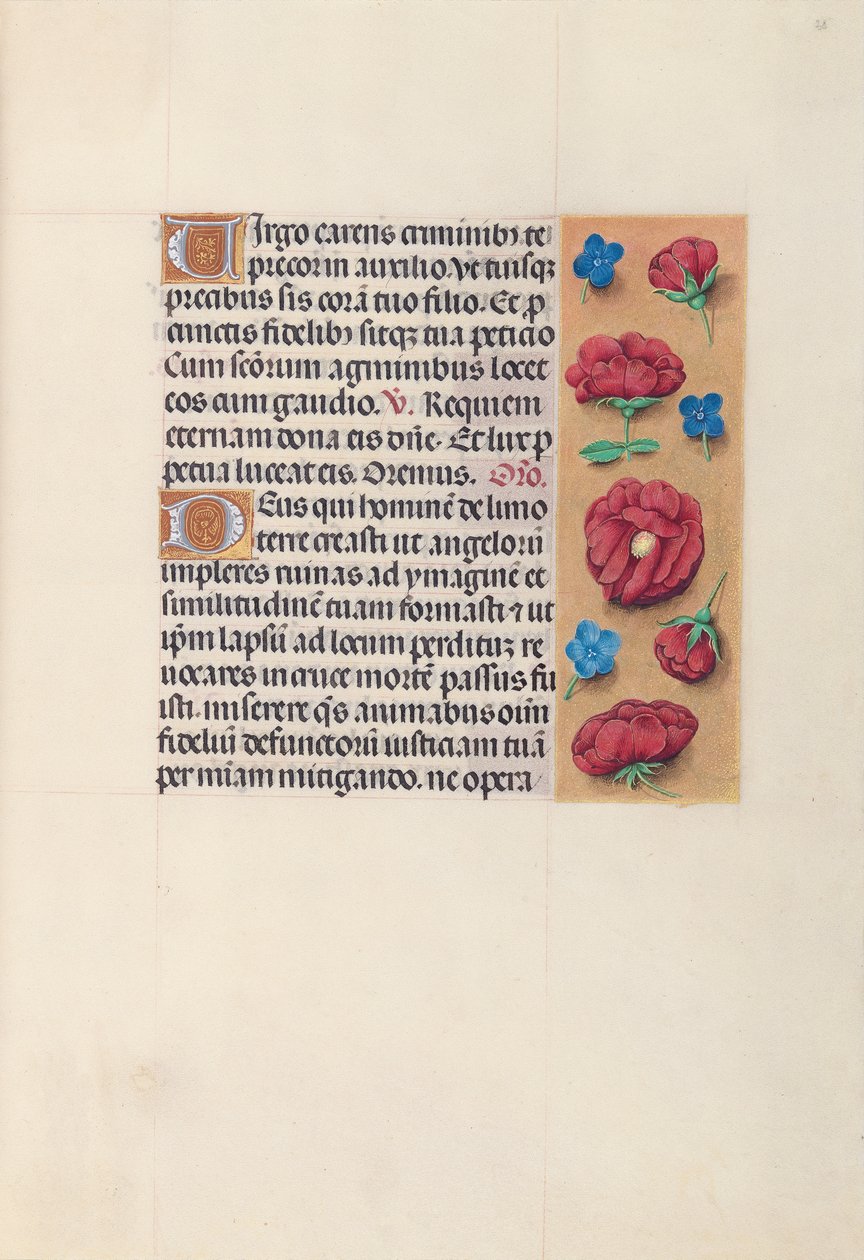 28
Virgo carens criminibꝫ te
precor in auxilio. Ve tuisqꝫ
precibus sis corā tuo filio. Et ꝓ
cunctis fidelibꝫ sitqꝫ tua peticio
Cum scōrum agminibus locet
eos cum gaudio. ℣. Requiem
eternam dona eis dn̄e. Et lux ꝑ
petua luceat eis. Oremus. Or̄o.
Deus qui hominē de limo
terre creasti ut angelorū
impleres ruinas ad ymaginē et
similitudinē tuam formasti ⁊ ut
ip̄m lapsū ad locum perditūꝫ re
uocares in cruce mortē passus fu
isti. miserere q̄s animabus oīm
fideliū defunctorū iusticiam tuā
per mīam mitigando. ne opera